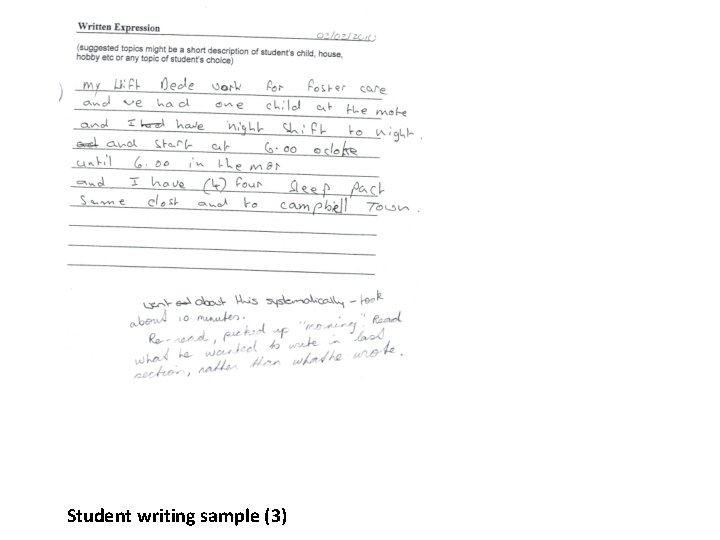 Written Expression
(suggested topics might be a short description of student's child, house,
hobby etc or any topic of student's choice)
my Wift Dede work for foster care
and ve had one child at the mote
and I have night Shift to night.
and start at 6.00 oclotke
until 6.00 in the mor
and I have (4) four sleep pact
Same clost and to campbell Town.
went about this systematically - took
about 10 minutes.
Re-read, picked up "morning". Read
what he wanted to write in last
section, rather than what he wrote.
Student writing sample (3)